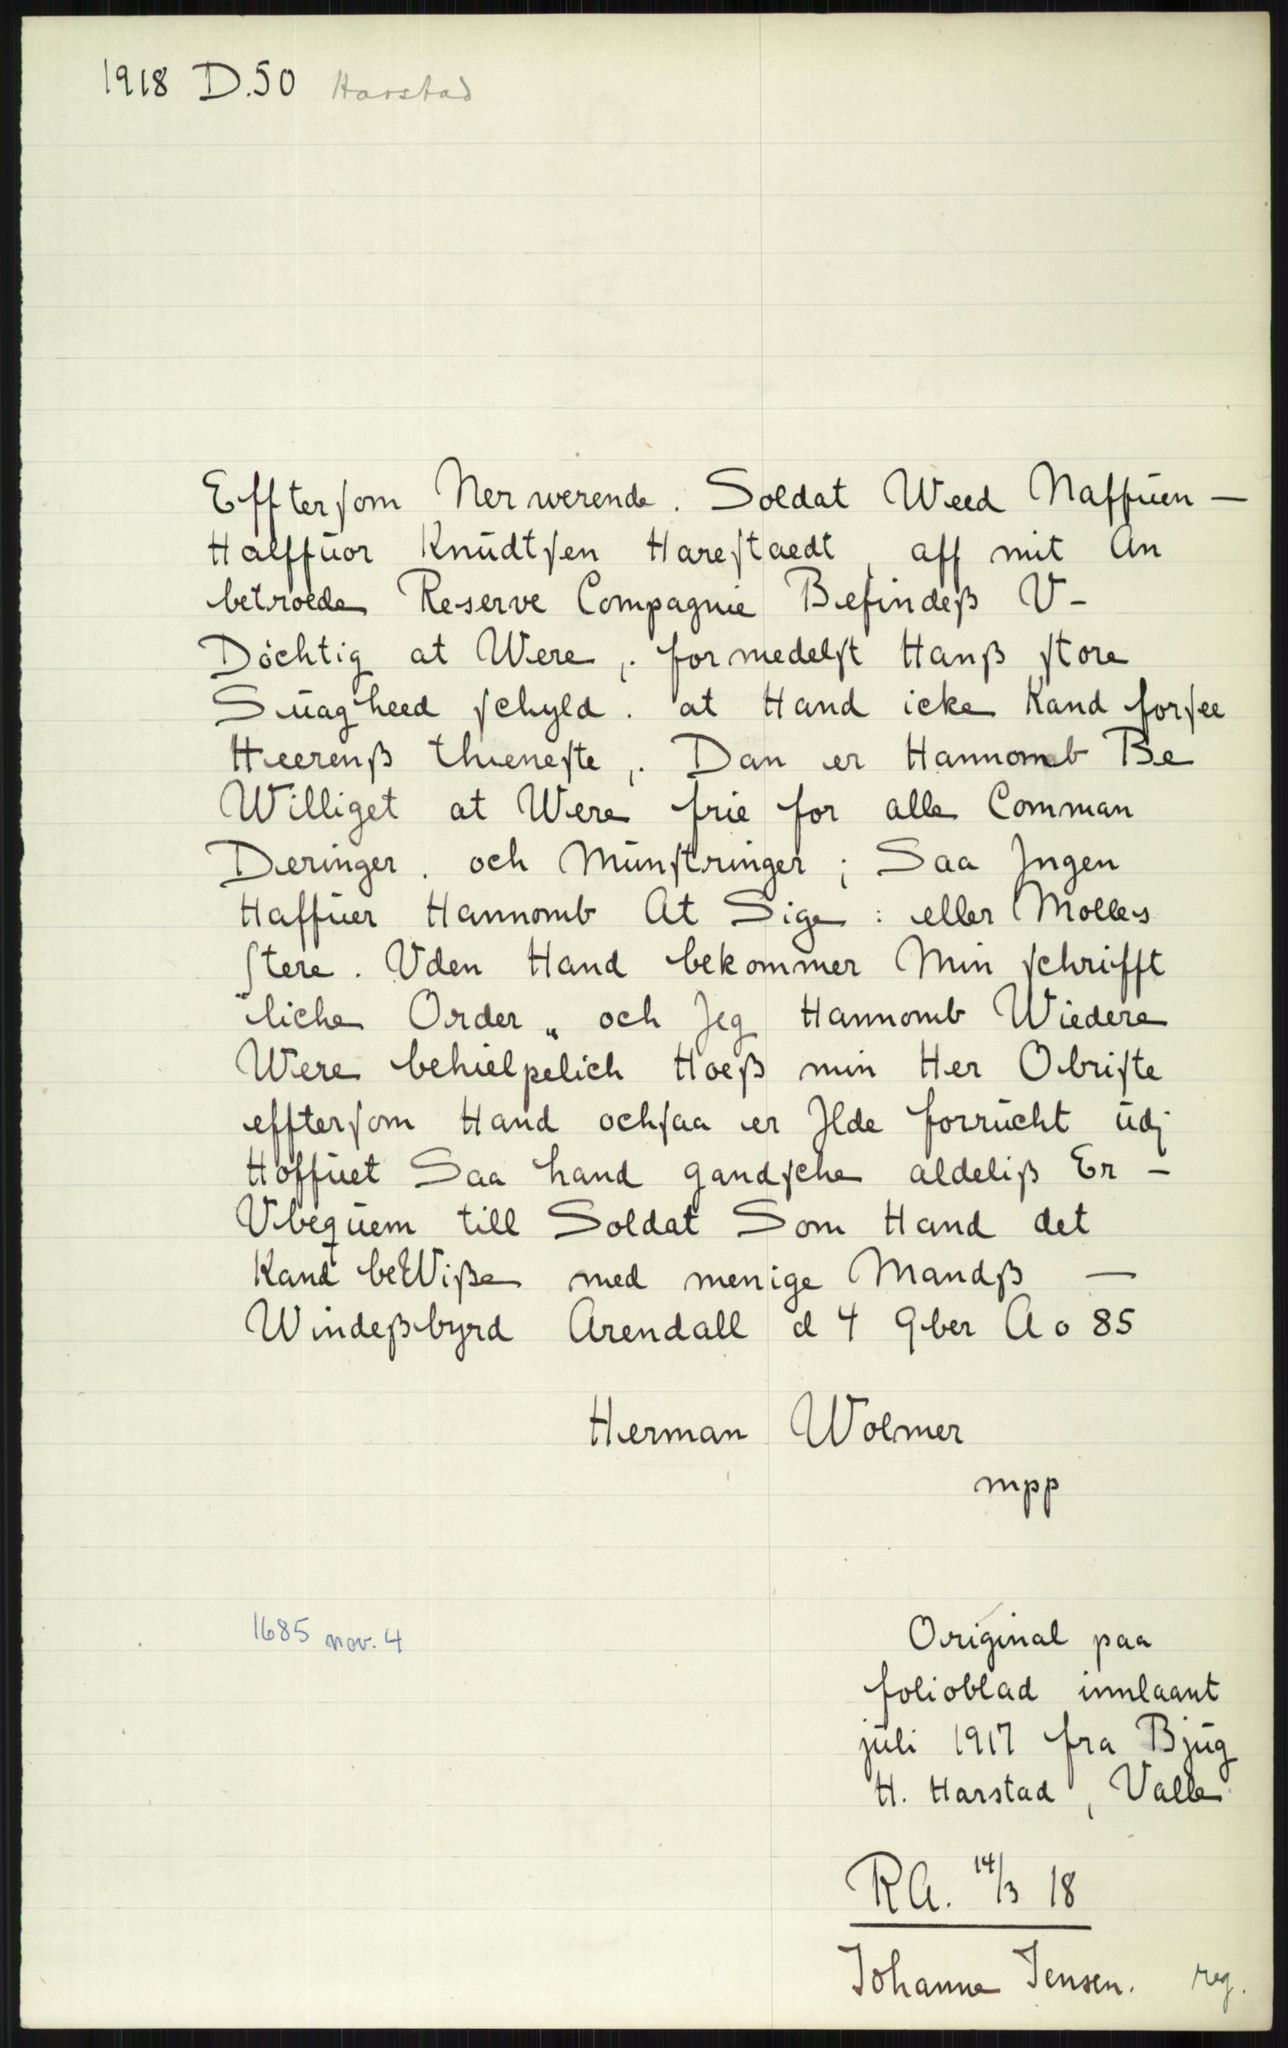 1918 D.50 Harstad
Effterſom Nerwerende. Soldat Weed Naffuen —
Halffüor Knüdtſen Hareſtaedt, aff mit An
betroede Reserve Compagnie Befindeß V-
Döchtig at Were,. formedelſt Hanß ſtore
Süagheed ſchyld. at Hand icke Kand forſee
Heerenß thieneſte,. Dan er Hannomb Be
Williget at Were frie for alle Comman
Deringer. och Münſtringer; Saa Jngen
Haffüer Hannomb At Sige: eller Molles
ſtere. Vden Hand bekommer Min ſchrifft
liche Order „ och Jeg Hannomb Wiedere
Were behielpelich Hoeß min Her Obriſte
effterſom Hand ochſaa er Jlde forrücht üdj
Hoffüet Saa hand gandſche aldeliß Er —
Vbeqüem till Soldat Som Hand det
Kand beWiße med menige Mandß —
Windeßbyrd Arendall d 4 9ber Ao 85
Herman Wolmer
mpp
1685 nov. 4
Original paa
folioblad innlaant
jüli 1917 fra Bjüg
H. Harstad, Valle
RA. 14/3 18
Johanne Jensen. reg.